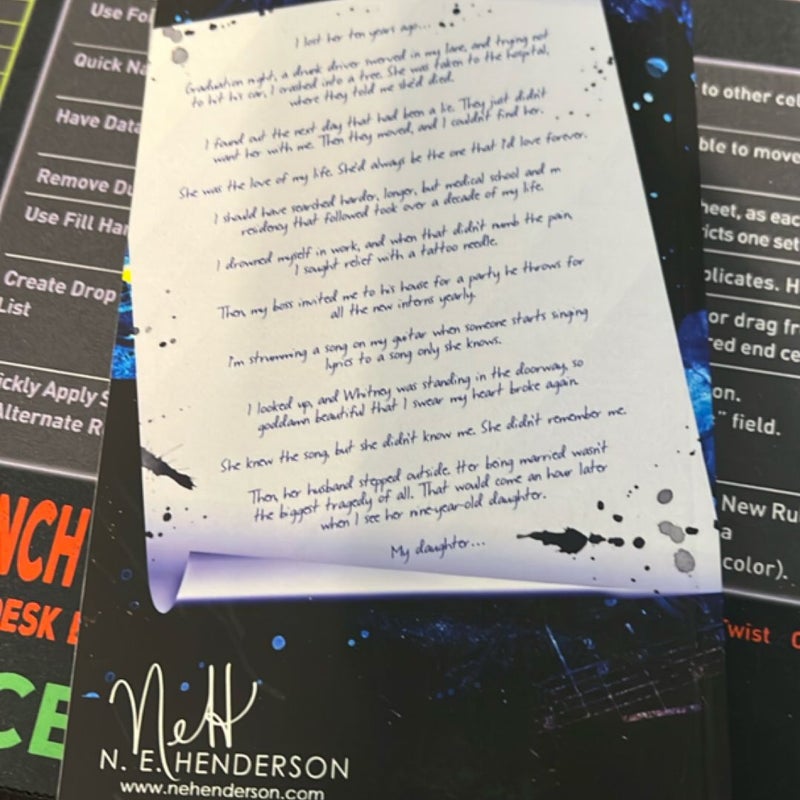 Use Fo
Quick Na
Have Data
Remove Du
Use Fill Han
Create Drop
List
ickly Apply S
Alternate R
NCH
DESK
CE
I lost her ten years ago...
Graduation night, a drunk driver swerved in my lane, and trying not
to hit his car, I crashed into a tree. She was taken to the hospital,
where they told me she'd died.
I found out the next day that had been a lie. They just didn't
want her with me. Then they moved, and I couldn't find her.
She was the love of my life. She'd always be the one that I'd love forever.
I should have searched harder, longer, but medical school and m
residency that followed took over a decade of my life.
I drowned myself in work, and when that didn't numb the pain,
I sought relief with a tattoo needle.
Then my boss invited me to his house for a party he throws for
all the new interns yearly.
I'm strumming a song on my guitar when someone starts singing
lyrics to a song only she knows.
I looked up, and Whitney was standing in the doorway, so
goddamn beautiful that I swear my heart broke again.
She knew the song, but she didn't know me. She didn't remember me.
Then, her husband stepped outside. Her being married wasn't
the biggest tragedy of all. That would come an hour later
when I see her nine-year-old daughter.
My daughter...
Nett
N. E. HENDERSON
www.nehenderson.com
to other cel
ble to move
heet, as each
icts one set
plicates. H
or drag fr
red end ce
on.
" field.
New Ru
a
color).
Twist